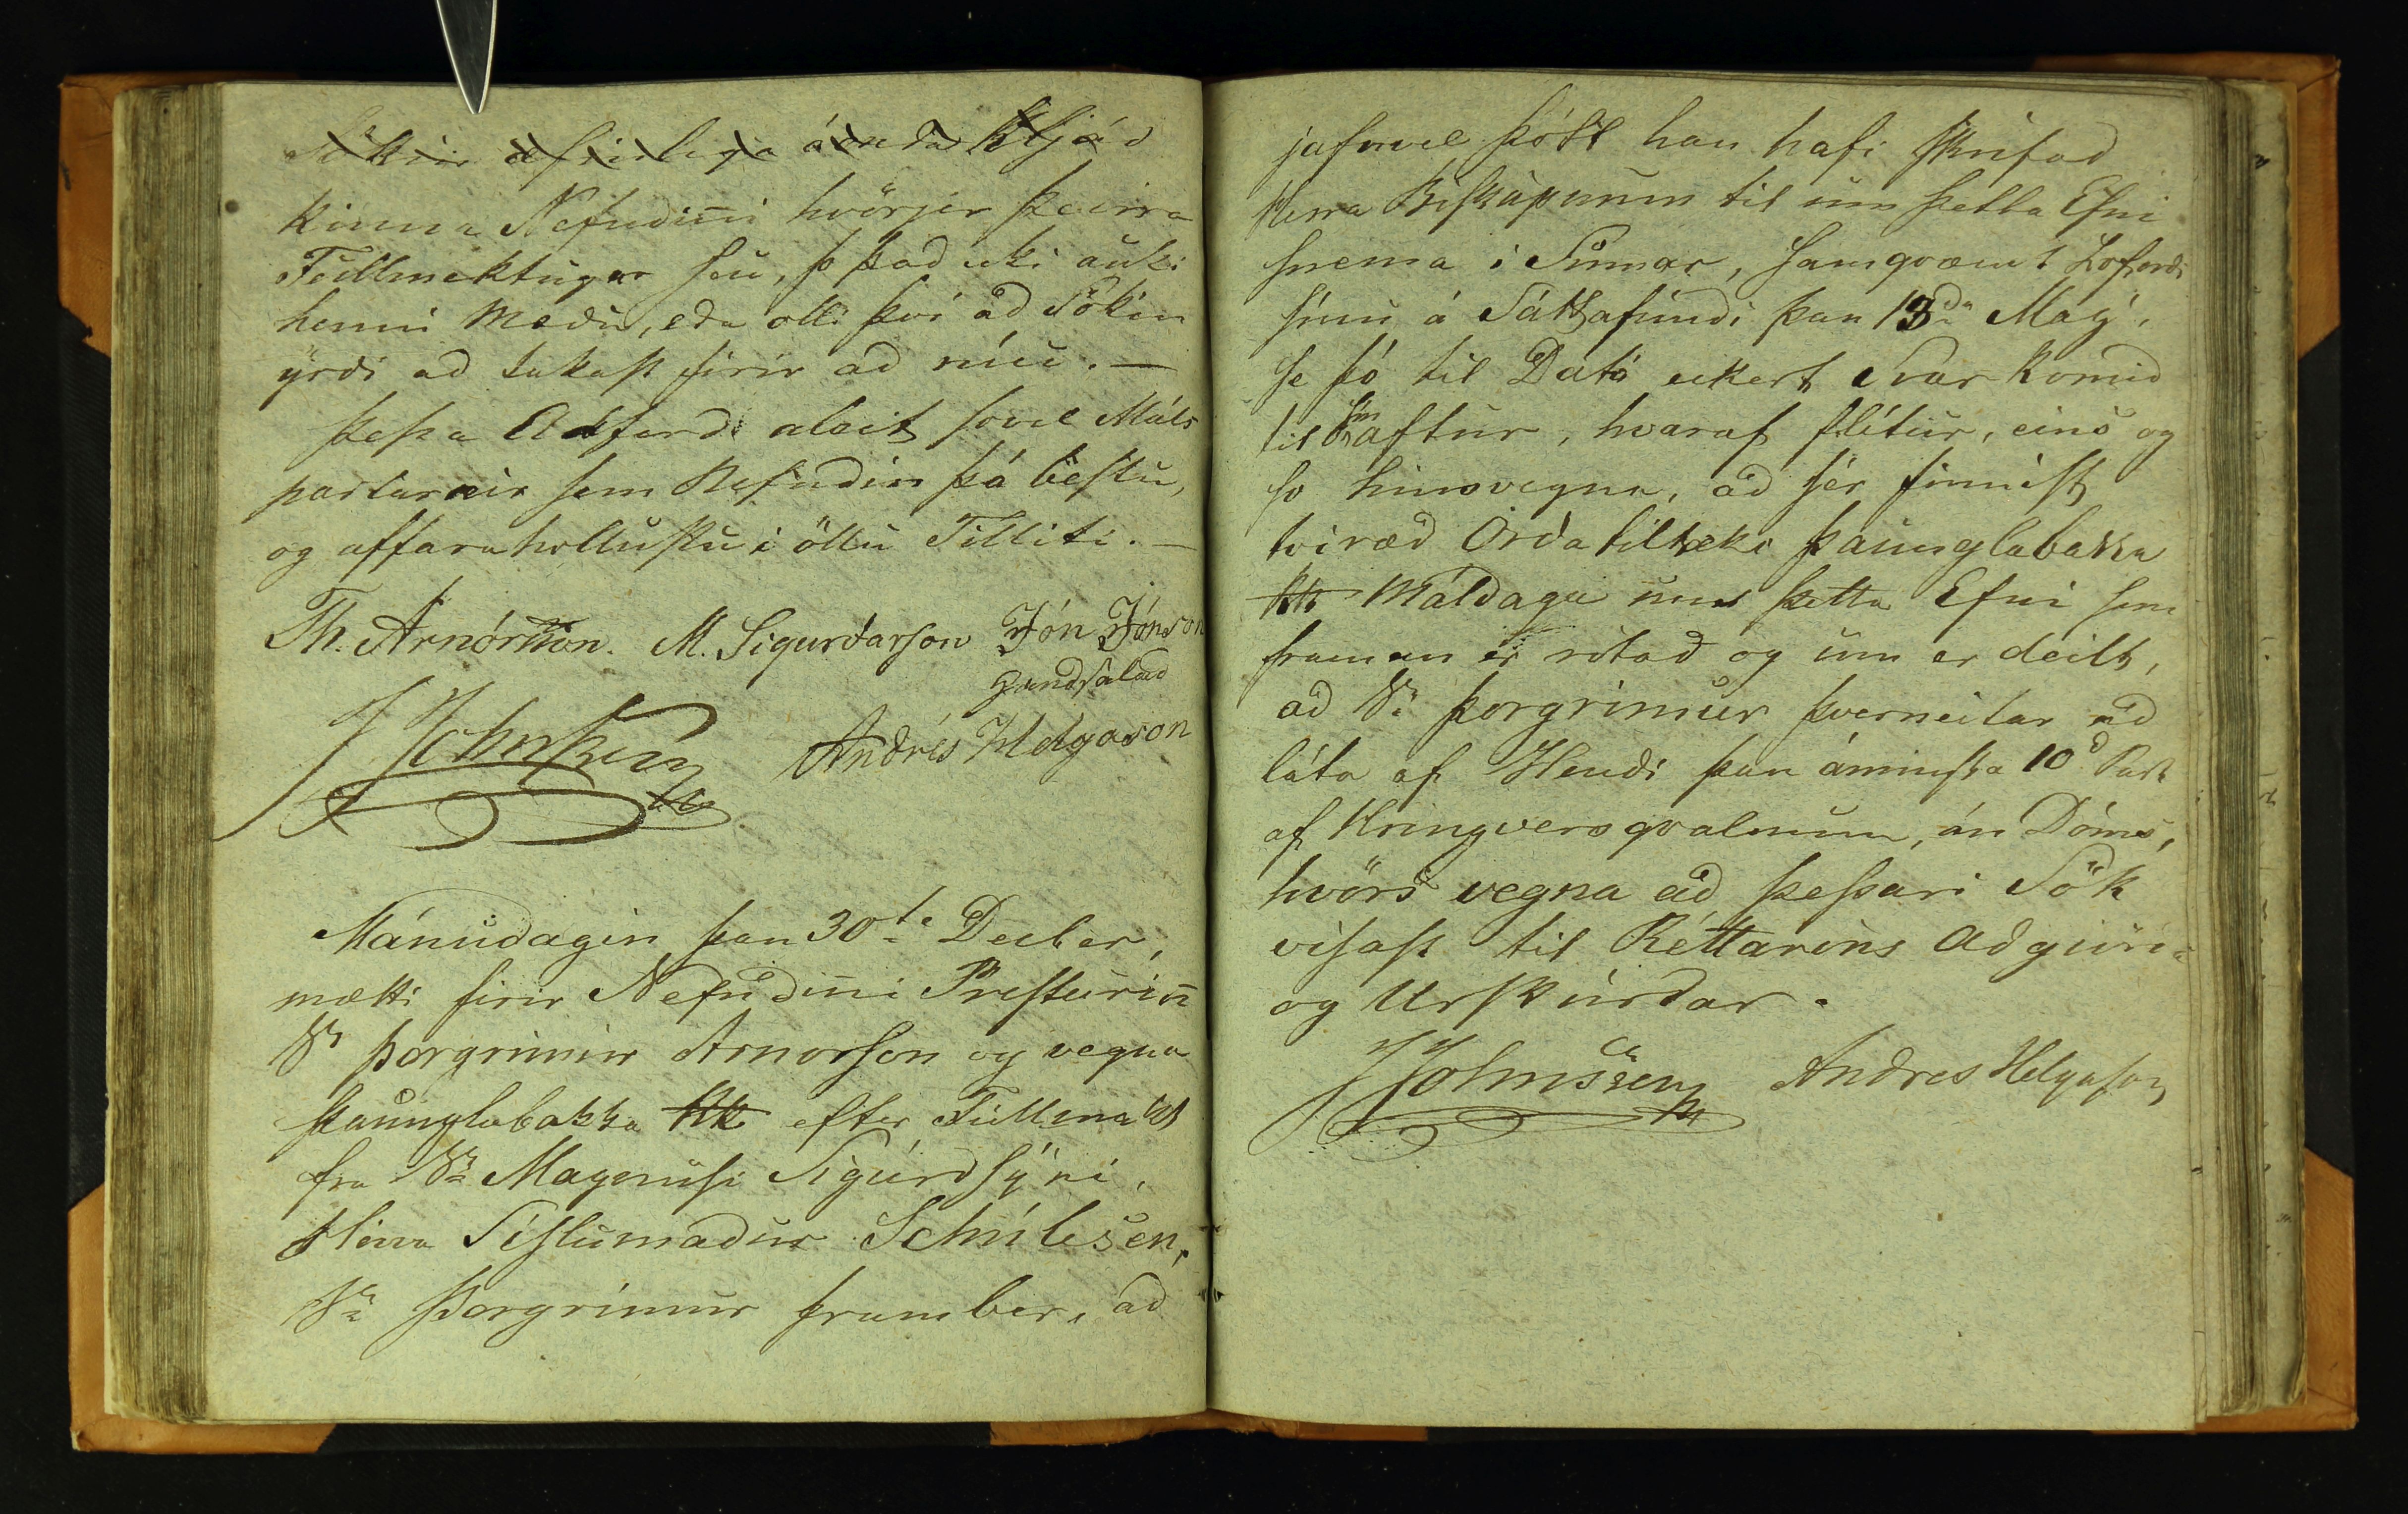 kinna Nefndiñi hvörjer þeirra
Fullmektugar séu, so það ecki auki
henni Mædu, eda olli því ad Sökin
yrdi ad takast firir ad níu. —
Þessa Adferd áleit sovel Máls
partarnir sem Nefndin þá bestu,
og affarahollustu i öllu Tilliti. —
Th. Arnórsson. M. Sigurdarson Jón Jónsson
handsalad
J Johnsen Andrés Helgason
Mánudagin þan 30te Decber,
mætti firir Nefndiñi Presturiñ
Sr Þorgrimur Arnorson og vegna
Þaunglabakka Kk efter Fullmakt
fra Sr Magnusi Sigurdsýni,
Herra Sislumadur Schulesen,
Sr Þorgrimur framber, ad
jafnvel þótt han hafi skrifad
Herra Biskupnum til um þetta Efni
snema i Sumar, samqvæmt Loford
sinu á Sáttafundi þan 13da Maý,
se þó til Dato eckert Svar komid
til sín aftur, hvaraf flítur, eins og
so hinsvegna, ad sér finnist
tviræd Ordatiltæki Þaunglabakka
Kk Máldaga um þetta Efni sem
framan er ritad og um er deilt,
ad Sr Þorgrimur þverneitar ad
láta af Hendi þan áminsta 10d Part
af Kringversqvalnum, án Dóms,
hvörs vegna ad þessari Sök
visast til Réttarins Adgiörd
og Urskurdar.
J Johnssen Andres Helgason